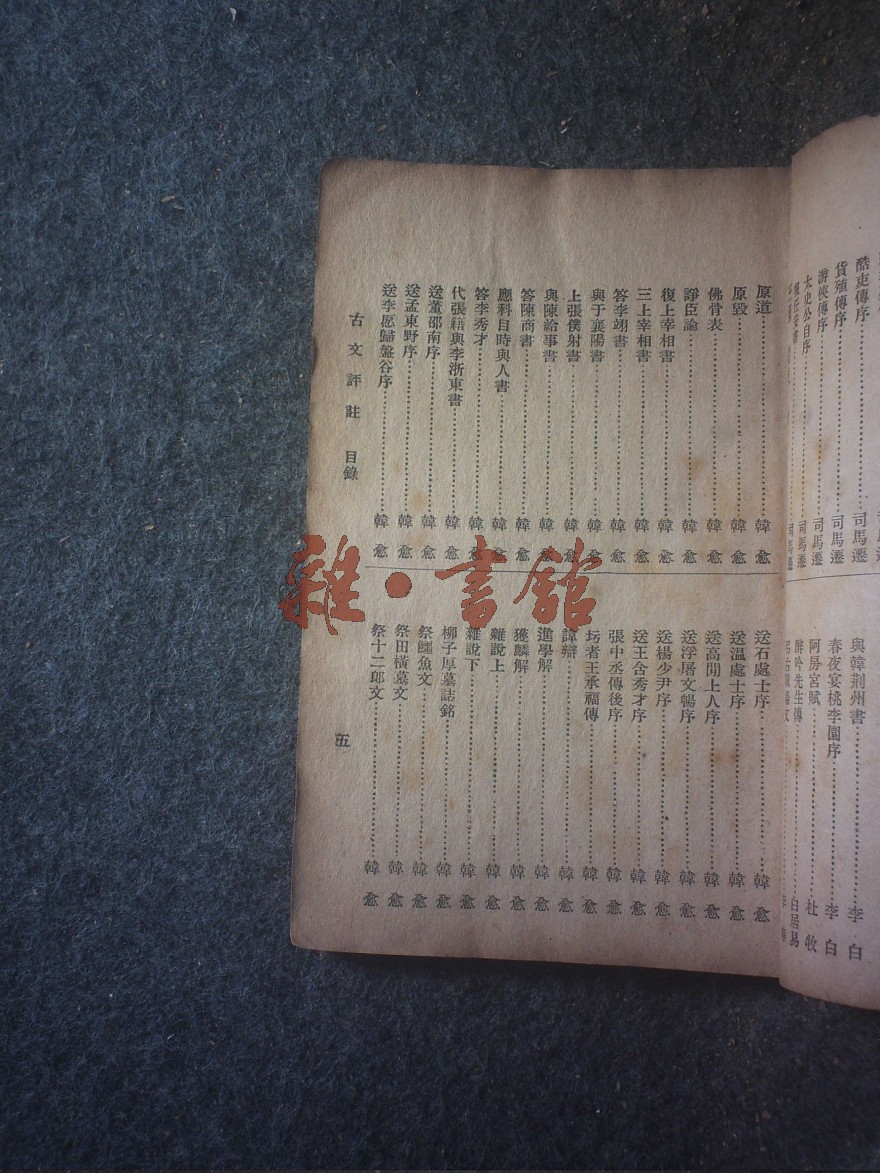 酷吏傳序 司馬遷
貨殖傳序 司馬遷
游俠傳序 司馬遷
太史公自序 司馬遷
司馬遷
與韓荆州書 李白
春夜宴桃李園序 李白
阿房宮賦 杜牧
醉吟先生傳 白居易
原道 韓愈
原毀 韓愈
佛骨表 韓愈
諍臣論 韓愈
復上宰相書 韓愈
三上宰相書 韓愈
答李翊書 韓愈
與于襄陽書 韓愈
上張僕射書 韓愈
與陳給事書 韓愈
答陳商書 韓愈
應科目時與人書 韓愈
答李秀才 韓愈
代張籍與李浙東書 韓愈
送董邵南序 韓愈
送孟東野序 韓愈
送李愿歸盤谷序 韓愈
送石處士序 韓愈
送温處士序 韓愈
送高閒上人序 韓愈
送浮屠文暢序 韓愈
送楊少尹序 韓愈
送王含秀才序 韓愈
張中丞傳後序 韓愈
圬者王承福傳 韓愈
諱辯 韓愈
進學解 韓愈
獲麟解 韓愈
雜說上 韓愈
雜說下 韓愈
柳子厚墓誌銘 韓愈
祭鱷魚文 韓愈
祭田橫墓文 韓愈
祭十二郎文 韓愈
古文評註 目錄 五
雜·書館